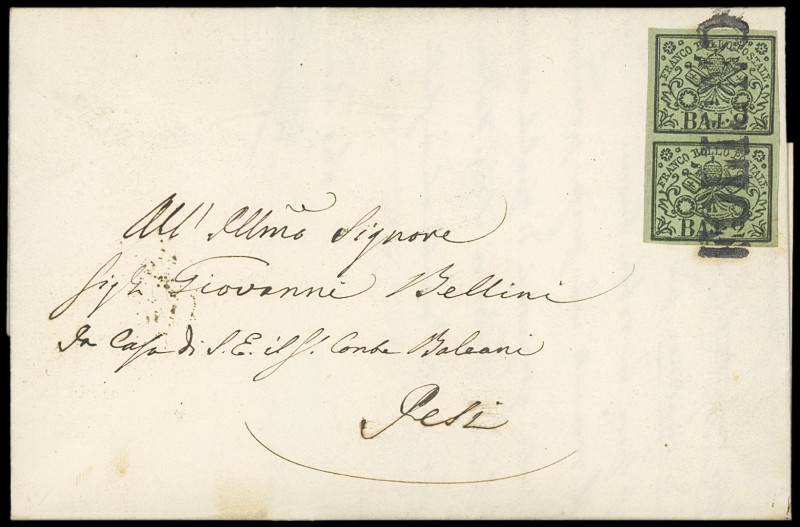 FRANCO BOLLO POSTALE
BAJ.
FRANCO BOLLO POSTALE
BAJ.
All' Illmo Signore
Sigr Giovanni Bellini
In Casa di S. E. il S. Conte Baleani
Jesi